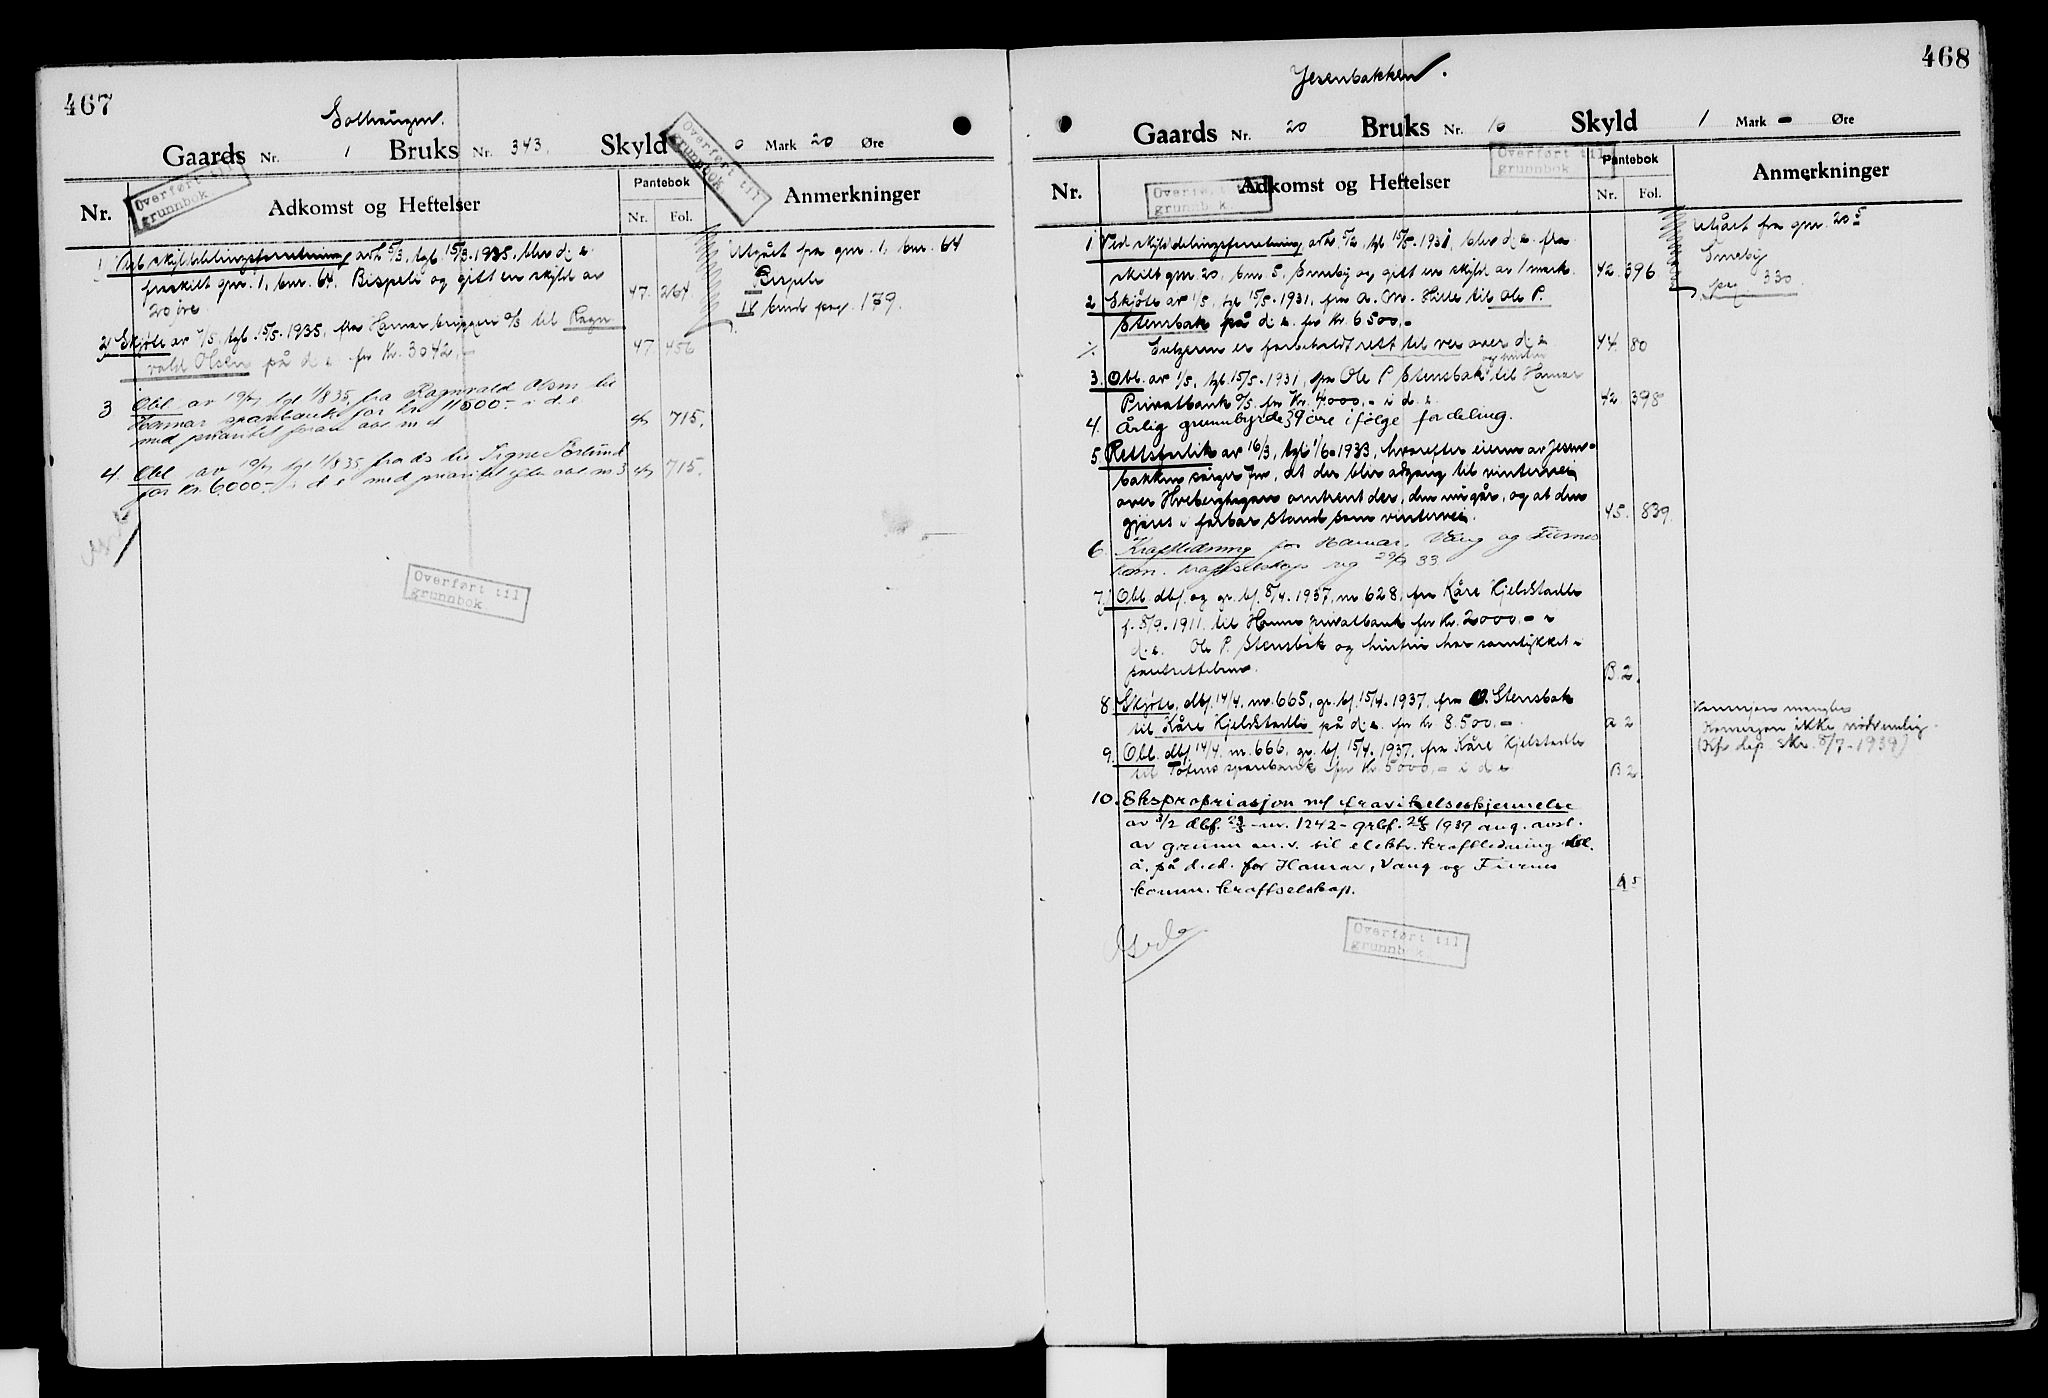 467
Solhaugen.
Gaards Nr. 1 Bruks Nr. 343. Skyld 0 Mark 20 Øre
Overført til
grunnbok
Overført til
grunnbok
Nr. Adkomst og Heftelser Pantebok Nr. Fol. Anmerkninger
1 Ved skylddelingsforretning avh. 5/3, tgl. 15/3-1935, blev d. e.
fraskilt gnr. 1, bnr. 64. Bispeli og gitt en skyld av
20 øre 47. 264.
Utgått fra gnr. 1, bnr. 64
Bispeli
IV bind pag. 179.
2 Skjøte av 7/5, tgl. 15/5-1935, fra Hamar bryggeri a/s til Ragn-
vald Olsen på d. e. for Kr. 3042,- 47 456
3 Obl av 19/7 tgl 1/8 35, fra Ragnvald Olsen til
Hamar sparebank for kr. 11500.- i d. e
med prioritet foran obl nr 4 47 715.
4. Obl av 19/7 tgl 1/8 35 fra ds til Signe
for Kr. 6000.- i d e med prioritet efter obl nr 3 47 715.
Overført til
grunnbok
468
Jesenbakken.
Gaards Nr. 20 Bruks Nr. 10 Skyld 1 Mark - Øre
Overført til
grunnbok
Overført til
grunnbok
Nr. Adkomst og Heftelser Pantebok Nr. Fol. Anmerkninger
1 Ved skylddelingsforretning avh. 5/2, tgl. 15/5-1931, blev d. e. fra
skilt gnr. 20, bnr. 5, Smeby og gitt en skyld av 1 mark. 42. 396
Utgått fra gnr. 20 5
Smeby
pag 330.
2 Skjøte av 1/5, tgl. 15/5-1931, fra A. M. Hille til Ole P.
Stensbak på d. e. for Kr. 6500,-
Selgeren er forbeholdt rett til vei over d. e. 44. 80
3. Obl. av 1/5, tgl. 15/5-1931, fra Ole P. Stensbak og hustru til Hamar
Privatbank a/s for Kr. 4000,- i d. e. 42 398
4. Årlig grunnbyrde 39 øre ifølge fordeling.
5 Rettsforlik av 16/3, tgl. 1/6-1933, hvorefter eieren av Jesen-
bakken sørger for, at der blir adgang til vintervei
over Hvebergshagen omtrent der, den nu går, og at den
gjøres i farbar stand som vintervei. 45. 839.
6 Kraftledning for Hamar, Vang og Furnes
kom. kraftselskap 33
7. Obl. dbf. og gr. bf. 8/4.1937, nr 628, fra Kåre Kjelstadli
f. 5/9.1911, til Hamar privatbank for kr. 2000.- i
d. e. Ole P. Stensbak og hustru har samtykket i
pantsettelsen. B 2.
8 Skjøte, dbf. 14/4. nr. 665, gr. bf. 15/4.1937, fra O. Stensbak
til Kåre Kjelstadli på d. e. for kr 8500,-. A 2
Konsesjon mangler
Konsesjon ikke nødvendig.
9. Obl. dbf. 14/4. nr. 666, gr. bf. 15/4.1937, fra Kåre Kjelstadli
til Totens sparebank for Kr. 5000,- i d e B 2.
10. Ekspropriasjon ved fravikelseskjennelse
av 3/2 dbf. 23/5 - nr. 1242 - grbf. 24/5 1939 ang. avst.
av grunn m. v. til elektr. kraftledning
å. på d. ed. for Hamar, Vang og Furnes
komm. kraftselskap. A 5
Overført til
grunnbok